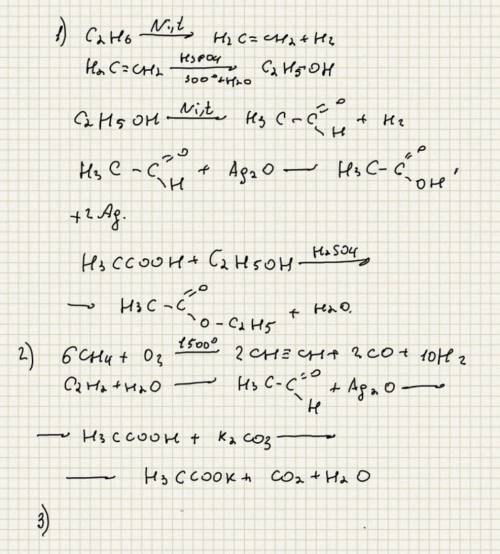 1) C2H6 Ni,t→ H2C=CH2 + H2
H2C=CH2 H3PO4 300°+H2O→ C2H5OH
C2H5OH Ni,t→ H3C-C=O H + H2
H3C-C=O H + Ag2O — H3C-C=O OH,
+2Ag.
H3CCOOH + C2H5OH H2SO4→
→ H3C-C=O O-C2H5 + H2O.
2) 6CH4 + O2 1500° 2CH≡CH + 2CO + 10H2
C2H2 + H2O — H3C-C=O H + Ag2O —
— H3CCOOH + K2CO3 —
— H3CCOOK + CO2 + H2O
3)